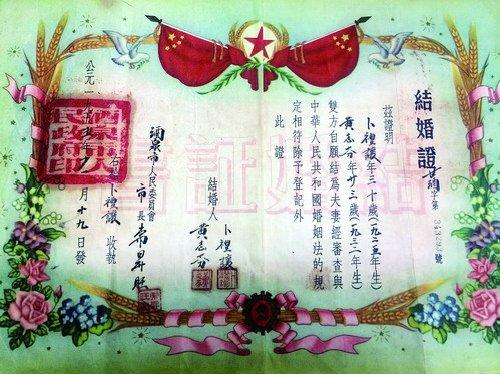 結婚證
字第 號
茲證明
卜禮讓年三十歲(一九二五年生)
黃志芬年廿三歲(一九三二年生)
雙方自願結為夫妻經審查與
中華人民共和國婚姻法的規
定相符除予登記外
此證
結婚人
卜禮讓
黃志芬
市人民委員會
市長
右給卜禮讓收執
公元一九五五年 月十九日發
結婚證書